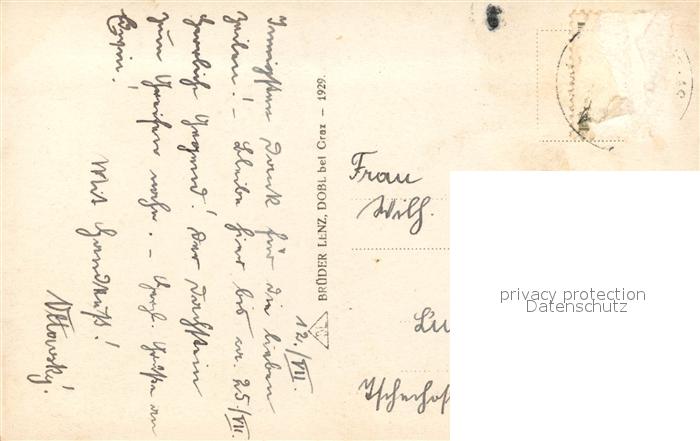 12./VII.
Innigsten Dank für die lieben
Zeilen! – Bleibe hier bis ca. 25./VII.
Herrliche Gegend! Der Dachstein
zum Greifen nahe. – Herzl. Grüße an
Mit Handkuß!
BRÜDER LENZ, DOBL bei Graz – 1929.
Frau
Wilh.
Lu
Tschechos
privacy protection
Datenschutz